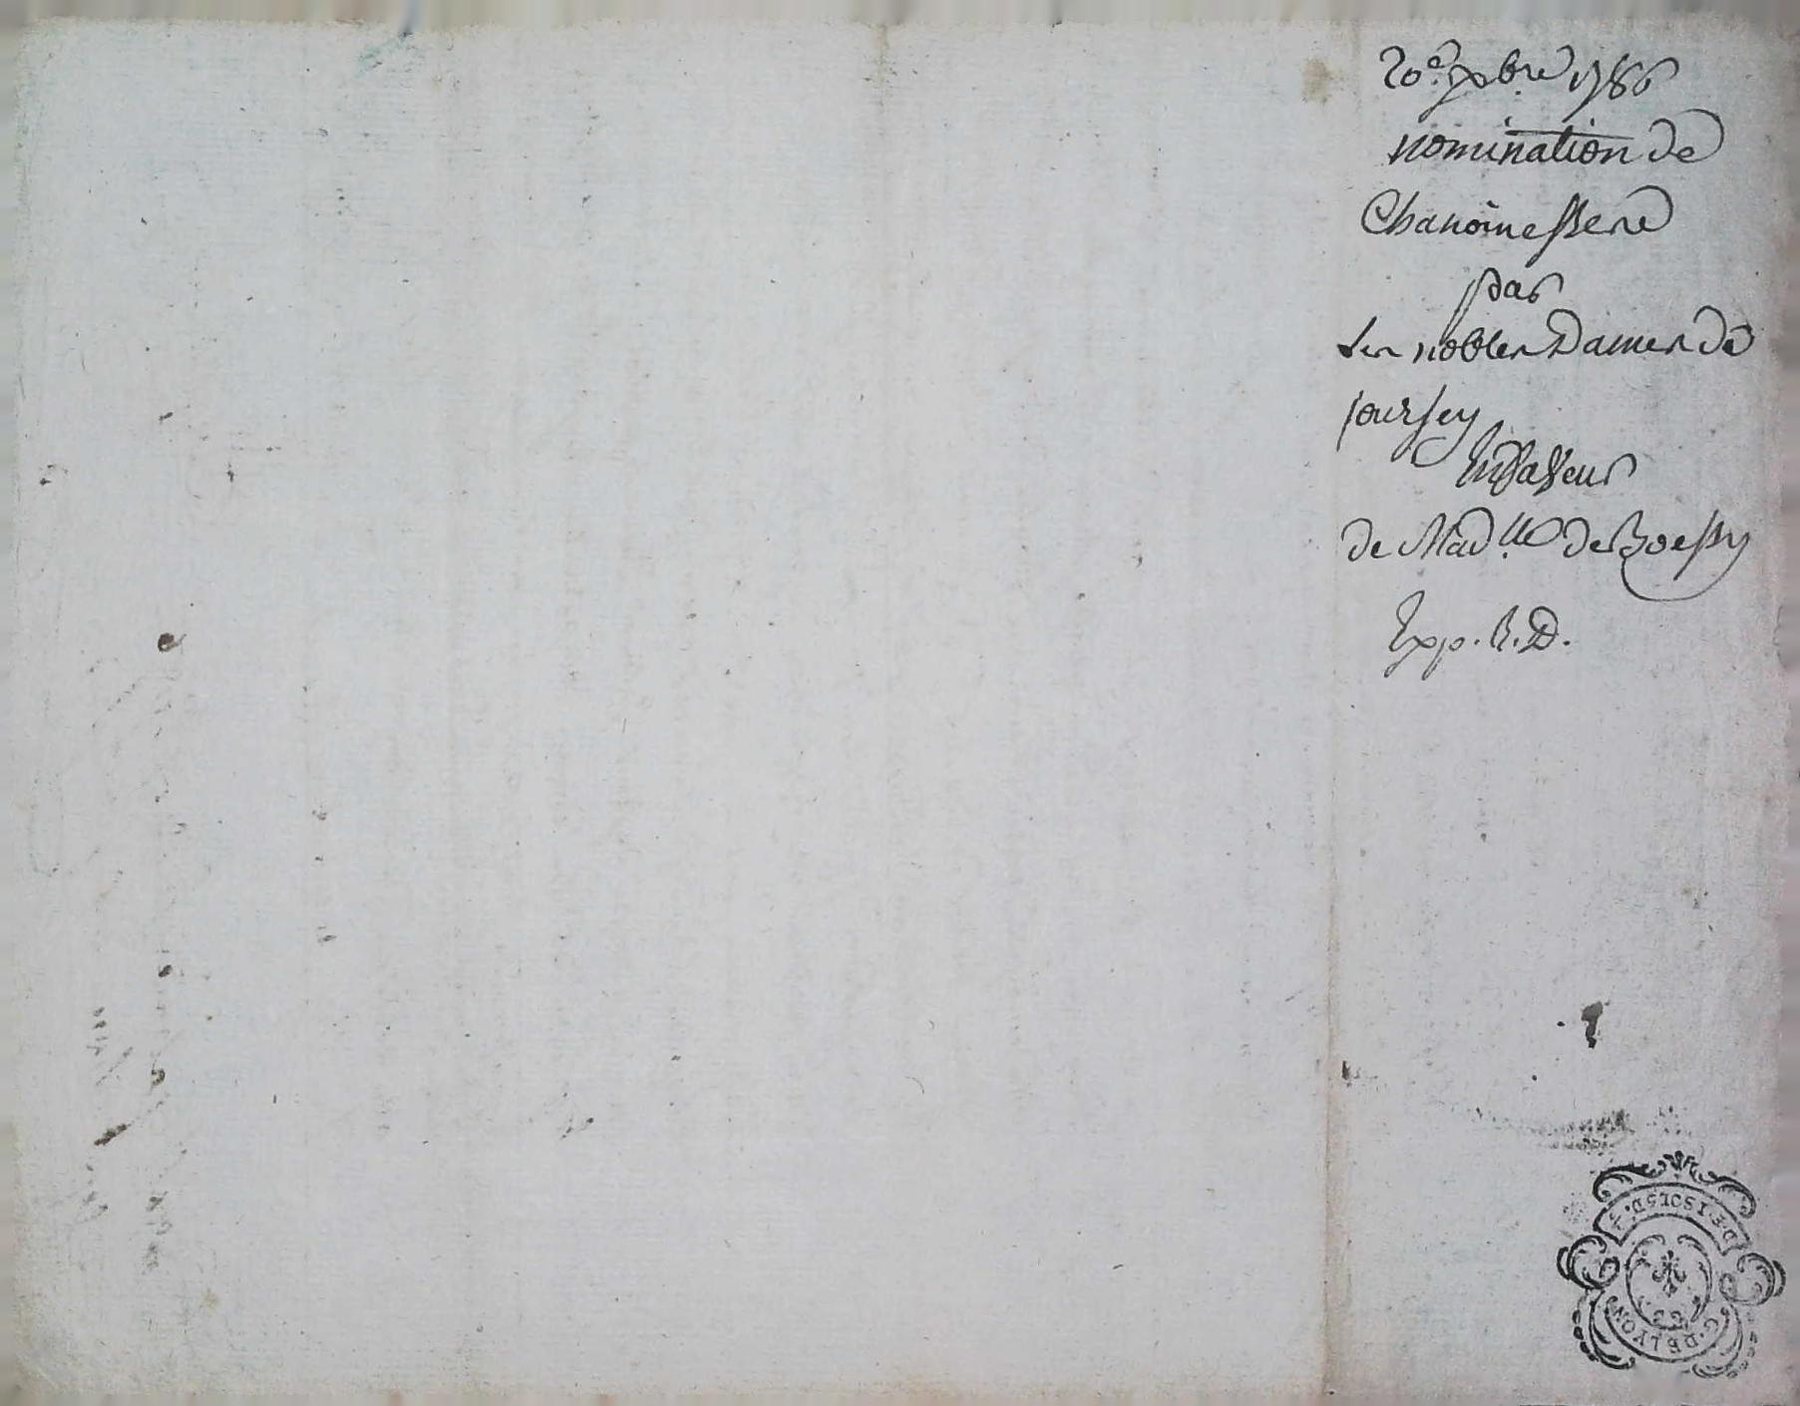 20e. xbre 1786
nomination de
Chanoinesse
par
Les nobles Dames de
joursey
En faveur
de Madlle de Boessy
Exp. R. D.
D.E. 1 SOL 5 D.
G. DE LYON